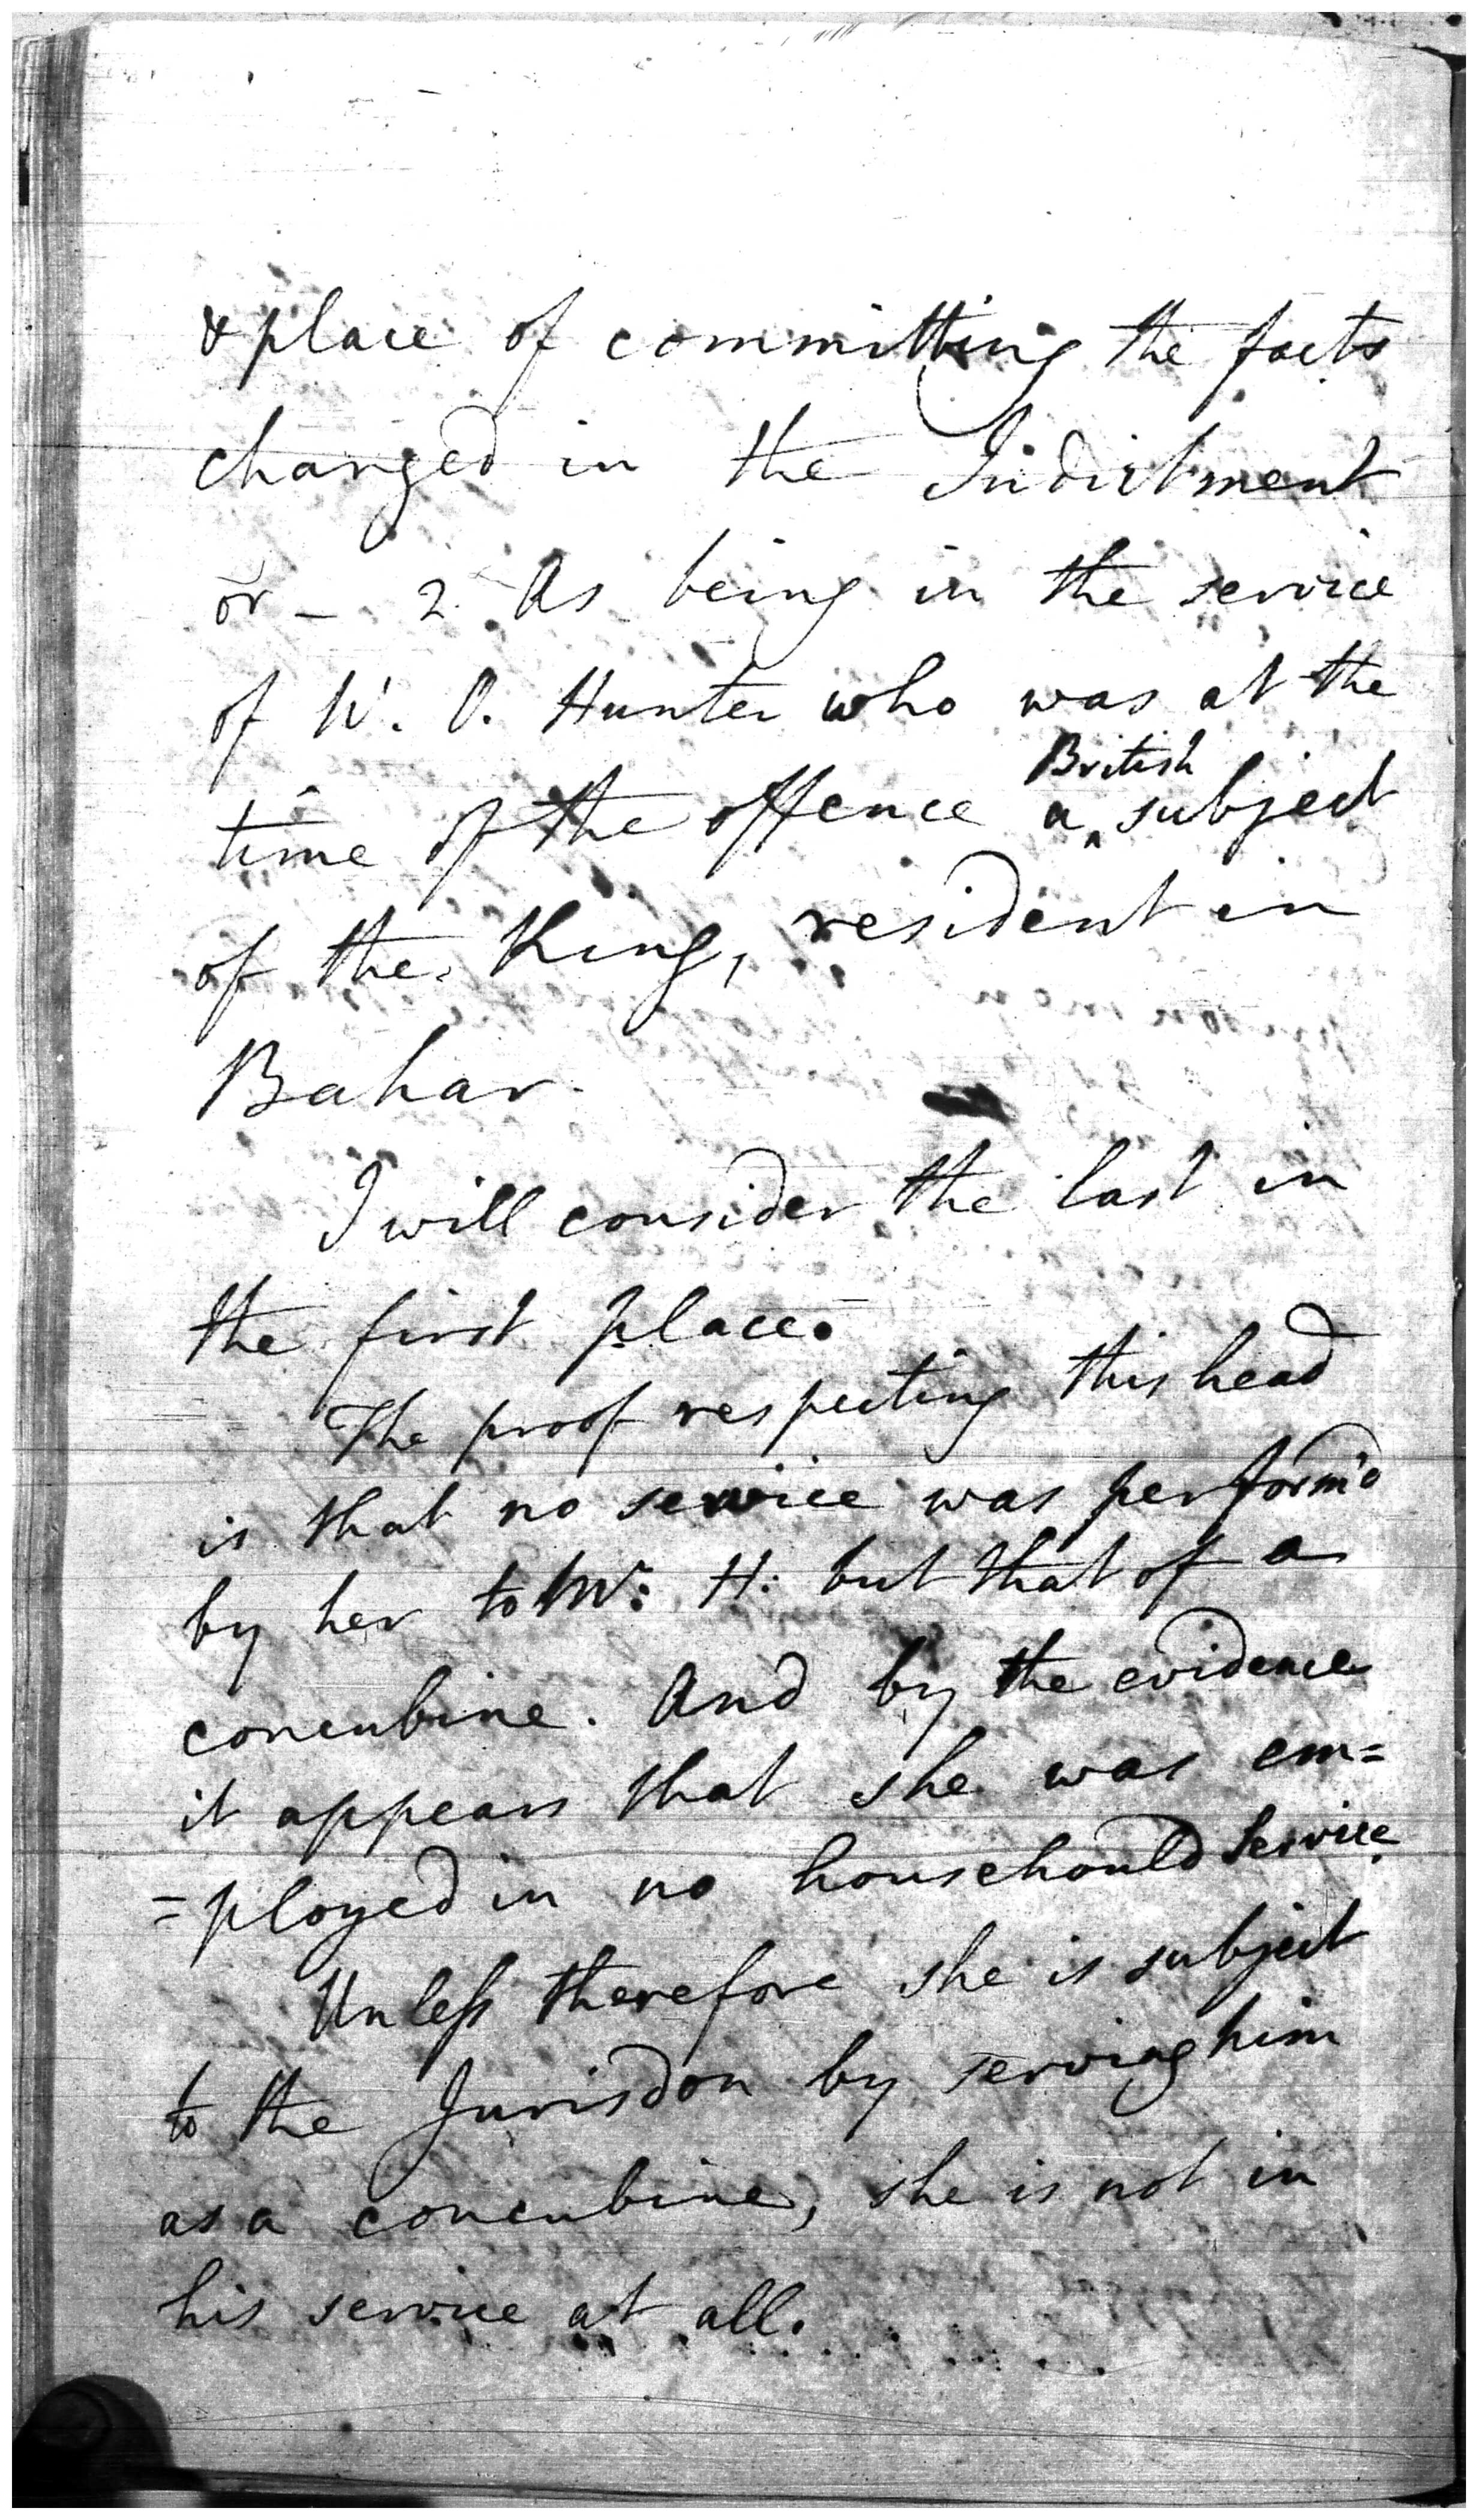 & place of committing the facts
charged in the Indictment
or – 2. As being in the service
of W. O. Hunter who was at the
British
time of the offence a ‸ subject
of the King, resident in
Bahar.
I will consider the last in
the first place.
The proof respecting this head
is that no service was perform'd
by her to Mr: H: but that of a
concubine. And by the evidence
it appears that she was em=
=ployed in no househould service.
Unless therefore she is subject
to the Jurisdon by serving him
as a concubine, she is not in
his service at all.